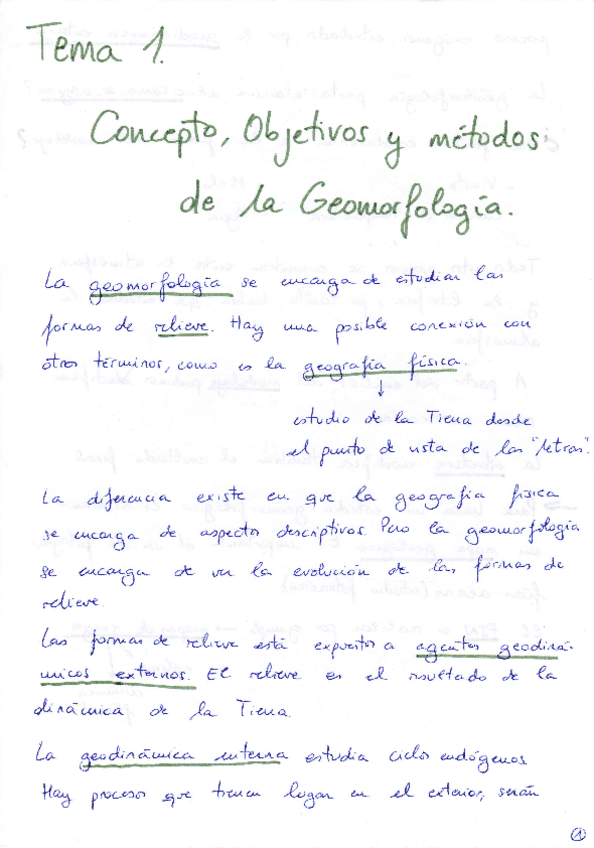 Tema 1.
Concepto, Objetivos y métodos
de la Geomorfología.
La geomorfología se encarga de estudiar las
formas de relieve. Hay una posible conexión con
otros términos, como es la geografía física.
↓
estudio de la Tierra desde
el punto de vista de las "letras".
La diferencia existe en que la geografía física
se encarga de aspectos descriptivos. Pero la geomorfología
se encarga de ver la evolución de las formas de
relieve.
Las formas de relieve está expuestos a agentes geodiná-
micos externos. El relieve es el resultado de la
dinámica de la Tierra.
La geodinámica interna estudia ciclos endógenos
Hay procesos que tienen lugar en el exterior, serán
1